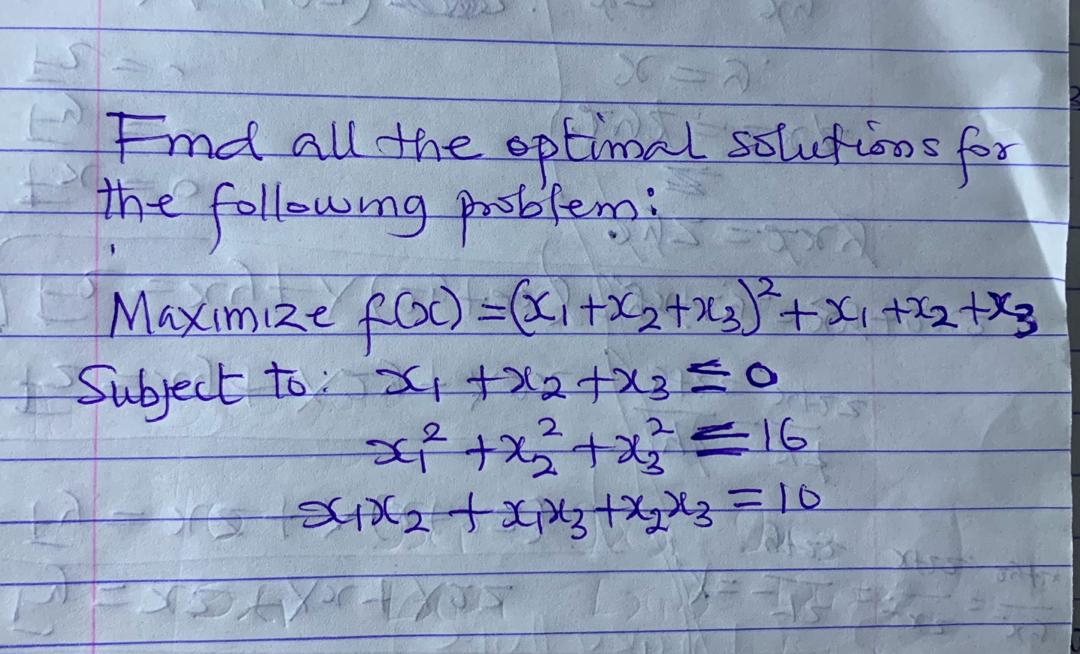 Find all the optimal solutions for
the following problem:
Maximize f(x) = (x₁ + x₂ + x₃)² + x₁ + x₂ + x₃
Subject to: x₁ + x₂ + x₃ ≤ 0
x₁² + x₂² + x₃² = 16
x₁x₂ + x₁x₃ + x₂x₃ = 10